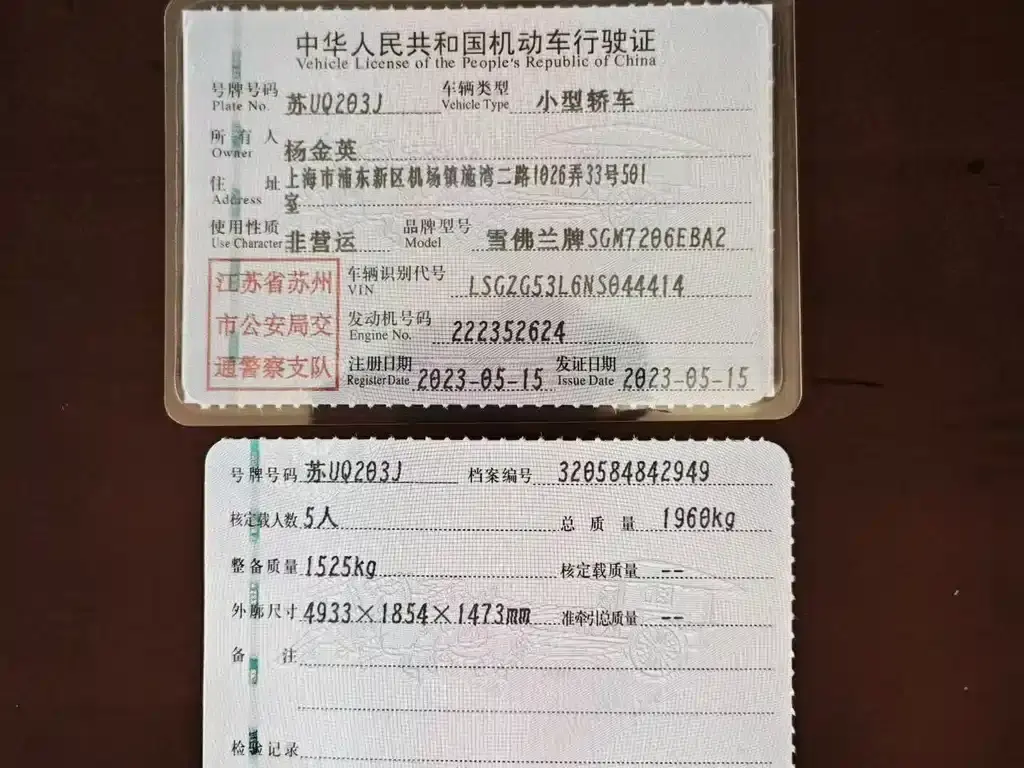 中华人民共和国机动车行驶证
Vehicle License of the People's Republic of China
号牌号码 苏UQ203J 车辆类型 小型轿车
Plate No. Vehicle Type
所有人 杨金英
Owner
住址 上海市浦东新区机场镇施湾二路1026弄33号501
Address 室
使用性质 非营运 品牌型号 雪佛兰牌SGM7206EBA2
Use Character Model
江苏省苏州
市公安局交
通警察支队
车辆识别代号 LSGZG53L6NS044414
VIN
发动机号码 222352624
Engine No.
注册日期 2023-05-15 发证日期 2023-05-15
Register Date Issue Date
号牌号码 苏UQ203J 档案编号 320584842949
核定载人数 5人 总质量 1960kg
整备质量 1525kg 核定载质量 --
外廓尺寸 4933×1854×1473mm 准牵引总质量 --
备注
检验记录